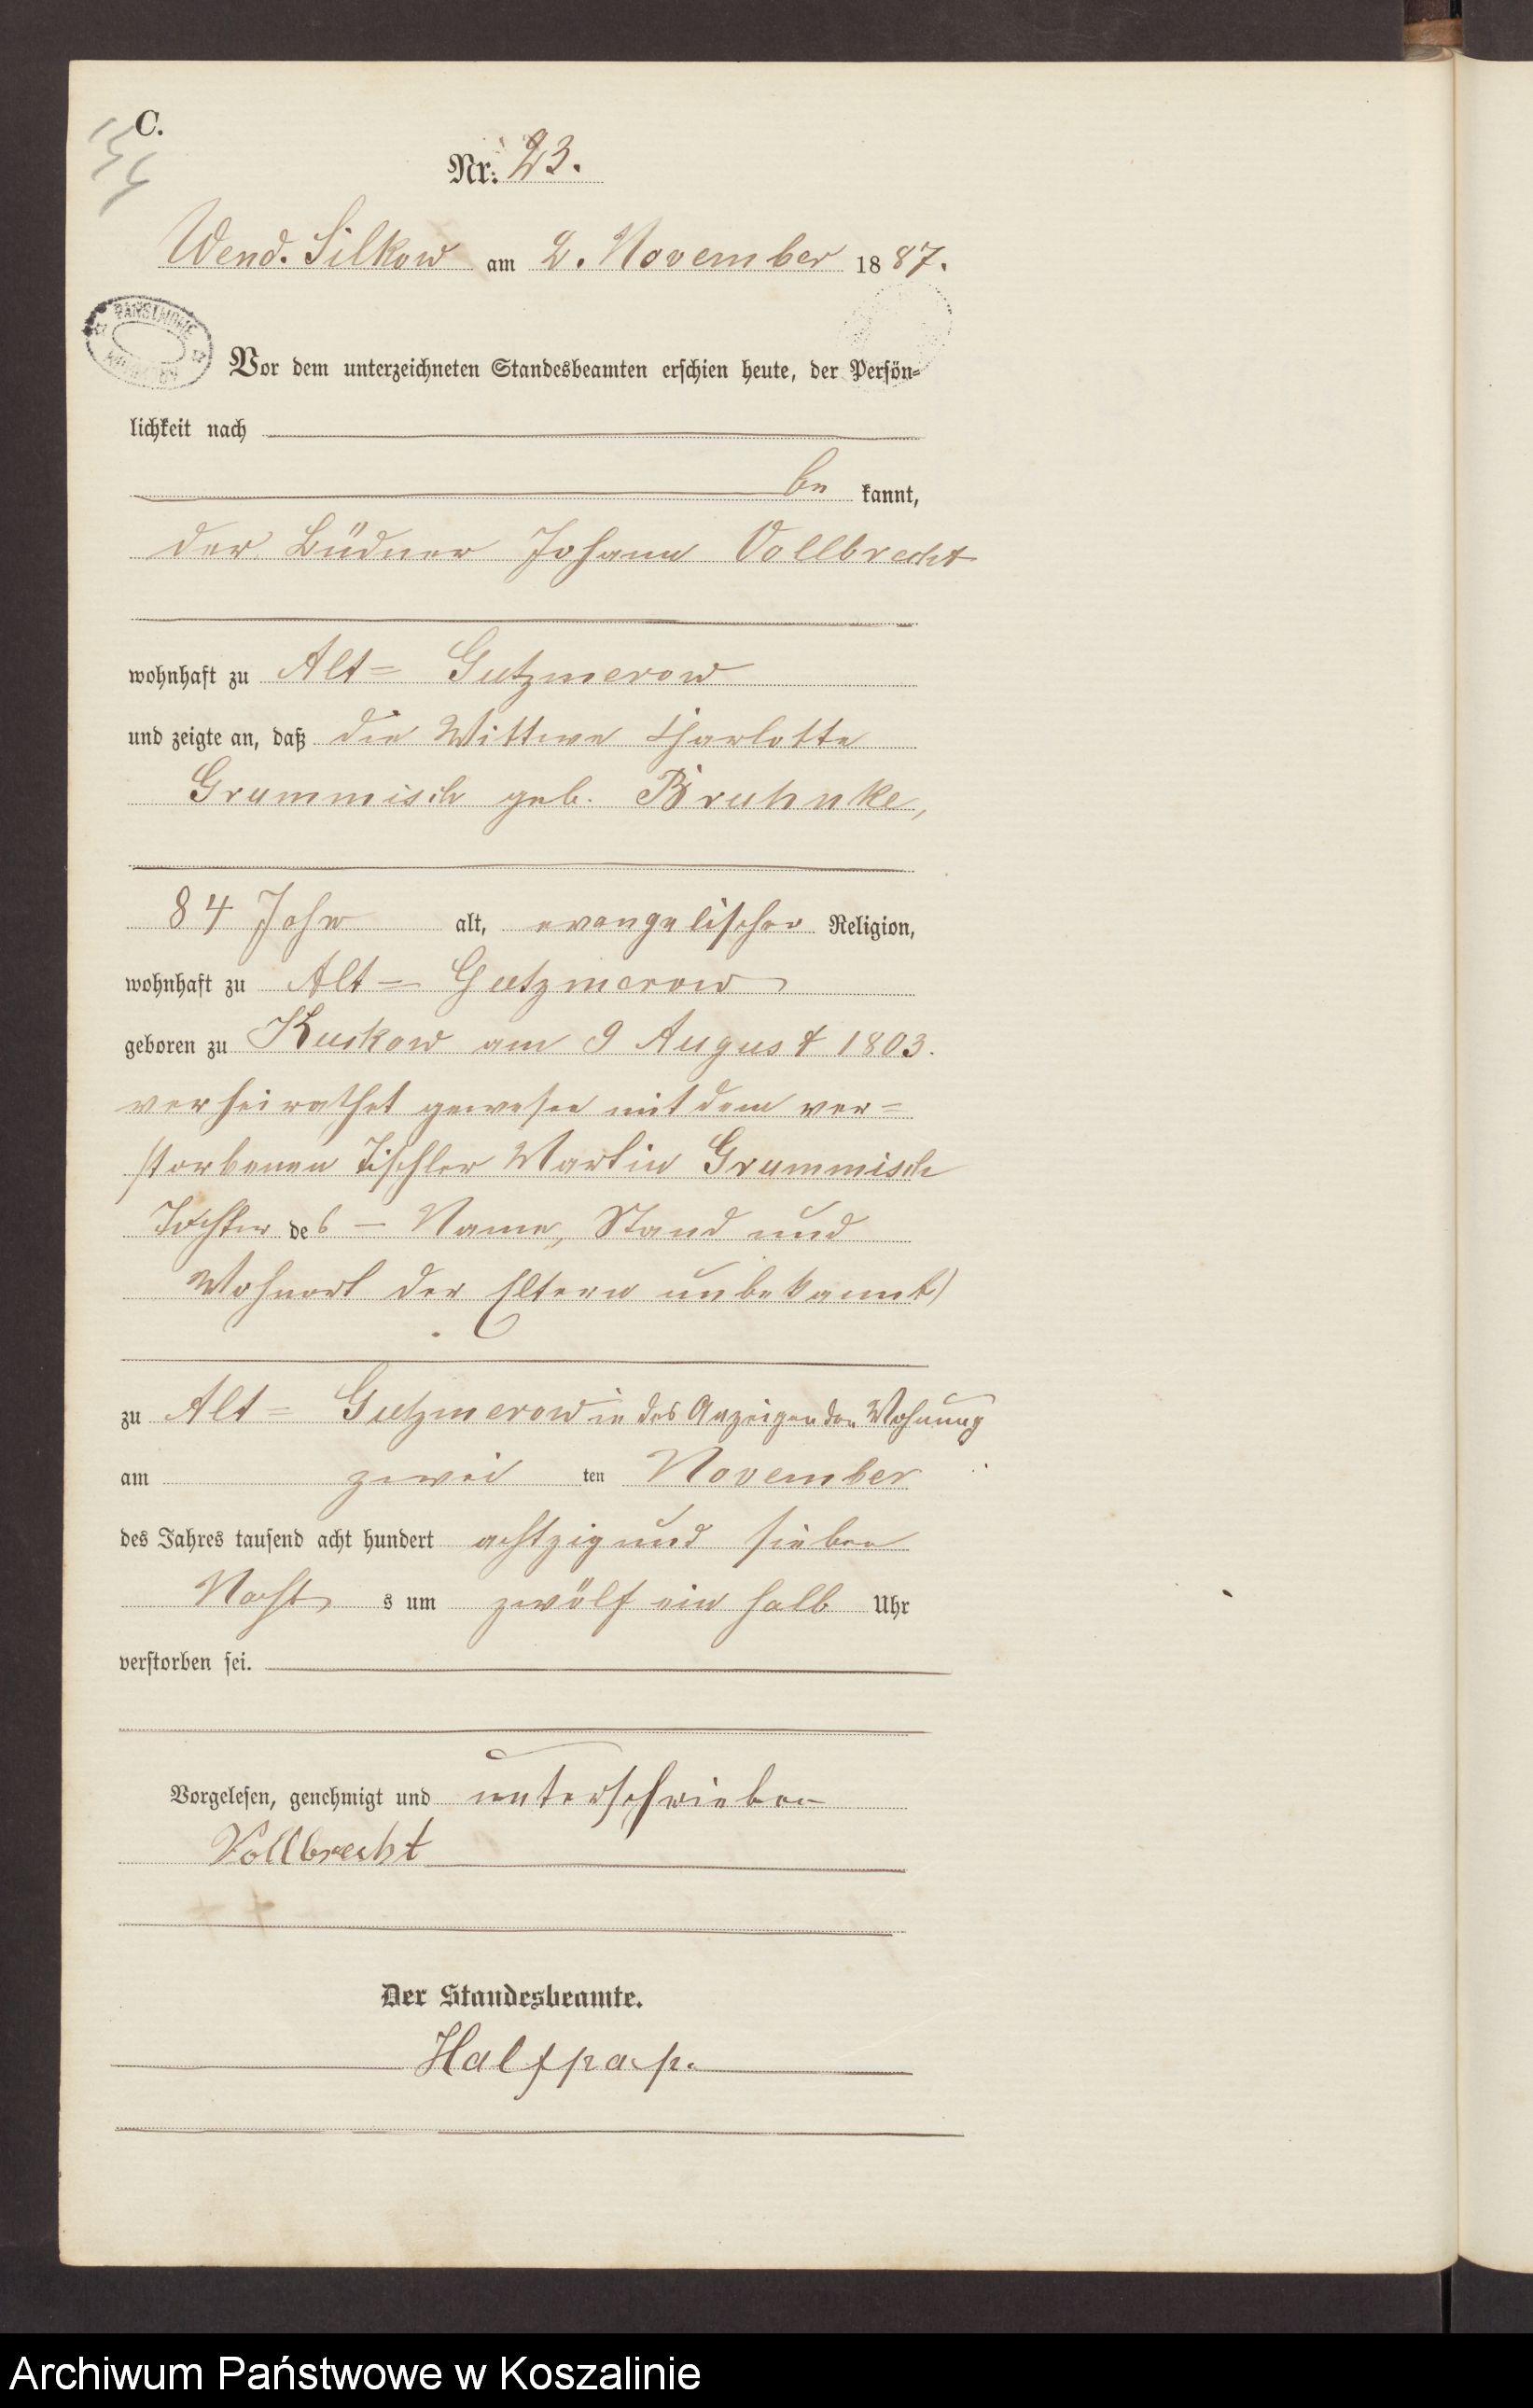 C.
Nr. 23.
Wend. Silkow am 2. November 1887.
PAŃSTWOWE
Vor dem unterzeichneten Standesbeamten erschien heute, der Persön-
lichkeit nach
be kannt,
der Büdner Johann Vollbrecht
wohnhaft zu Alt- Gutzmerow
und zeigte an, daß die Wittwe Charlotte
Grummisch geb. Bruhnke,
84 Jahr alt, evangelischer Religion,
wohnhaft zu Alt- Gutzmerow
geboren zu Kuskow am 9 August 1803.
verheirathet gewesen mit dem ver-
storbenen Tischler Martin Grummisch
Tochter des – Name, Stand und
Wohnort der Eltern unbekannt)
zu Alt- Gutzmerow in des Anzeigenden Wohnung
am zwei ten November
des Jahres tausend acht hundert achtzig und sieben
Nacht s um zwölf ein halb Uhr
verstorben sei.
Vorgelesen, genehmigt und unterschrieben
Vollbrecht
Der Standesbeamte.
Halfpap.
Archiwum Państwowe w Koszalinie